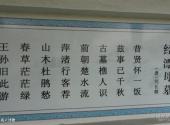 经漂母墓
(唐)刘长卿
昔贤怀一饭
兹事已千秋
古墓樵人识
前朝楚水流
萍渚行客荐
山木杜鹃愁
春草茫茫绿
王孙旧此游